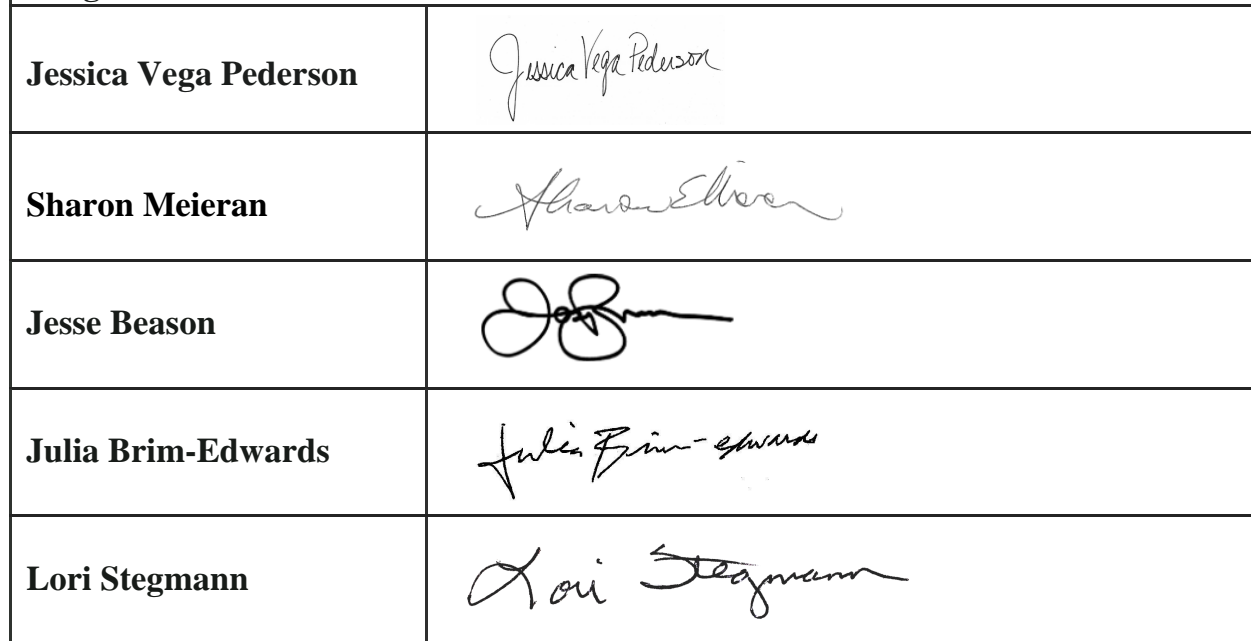 Jessica Vega Pederson Jessica Vega Pederson
Sharon Meieran
Jesse Beason
Julia Brim-Edwards Julia Brim-Edwards
Lori Stegmann Lori Stegmann